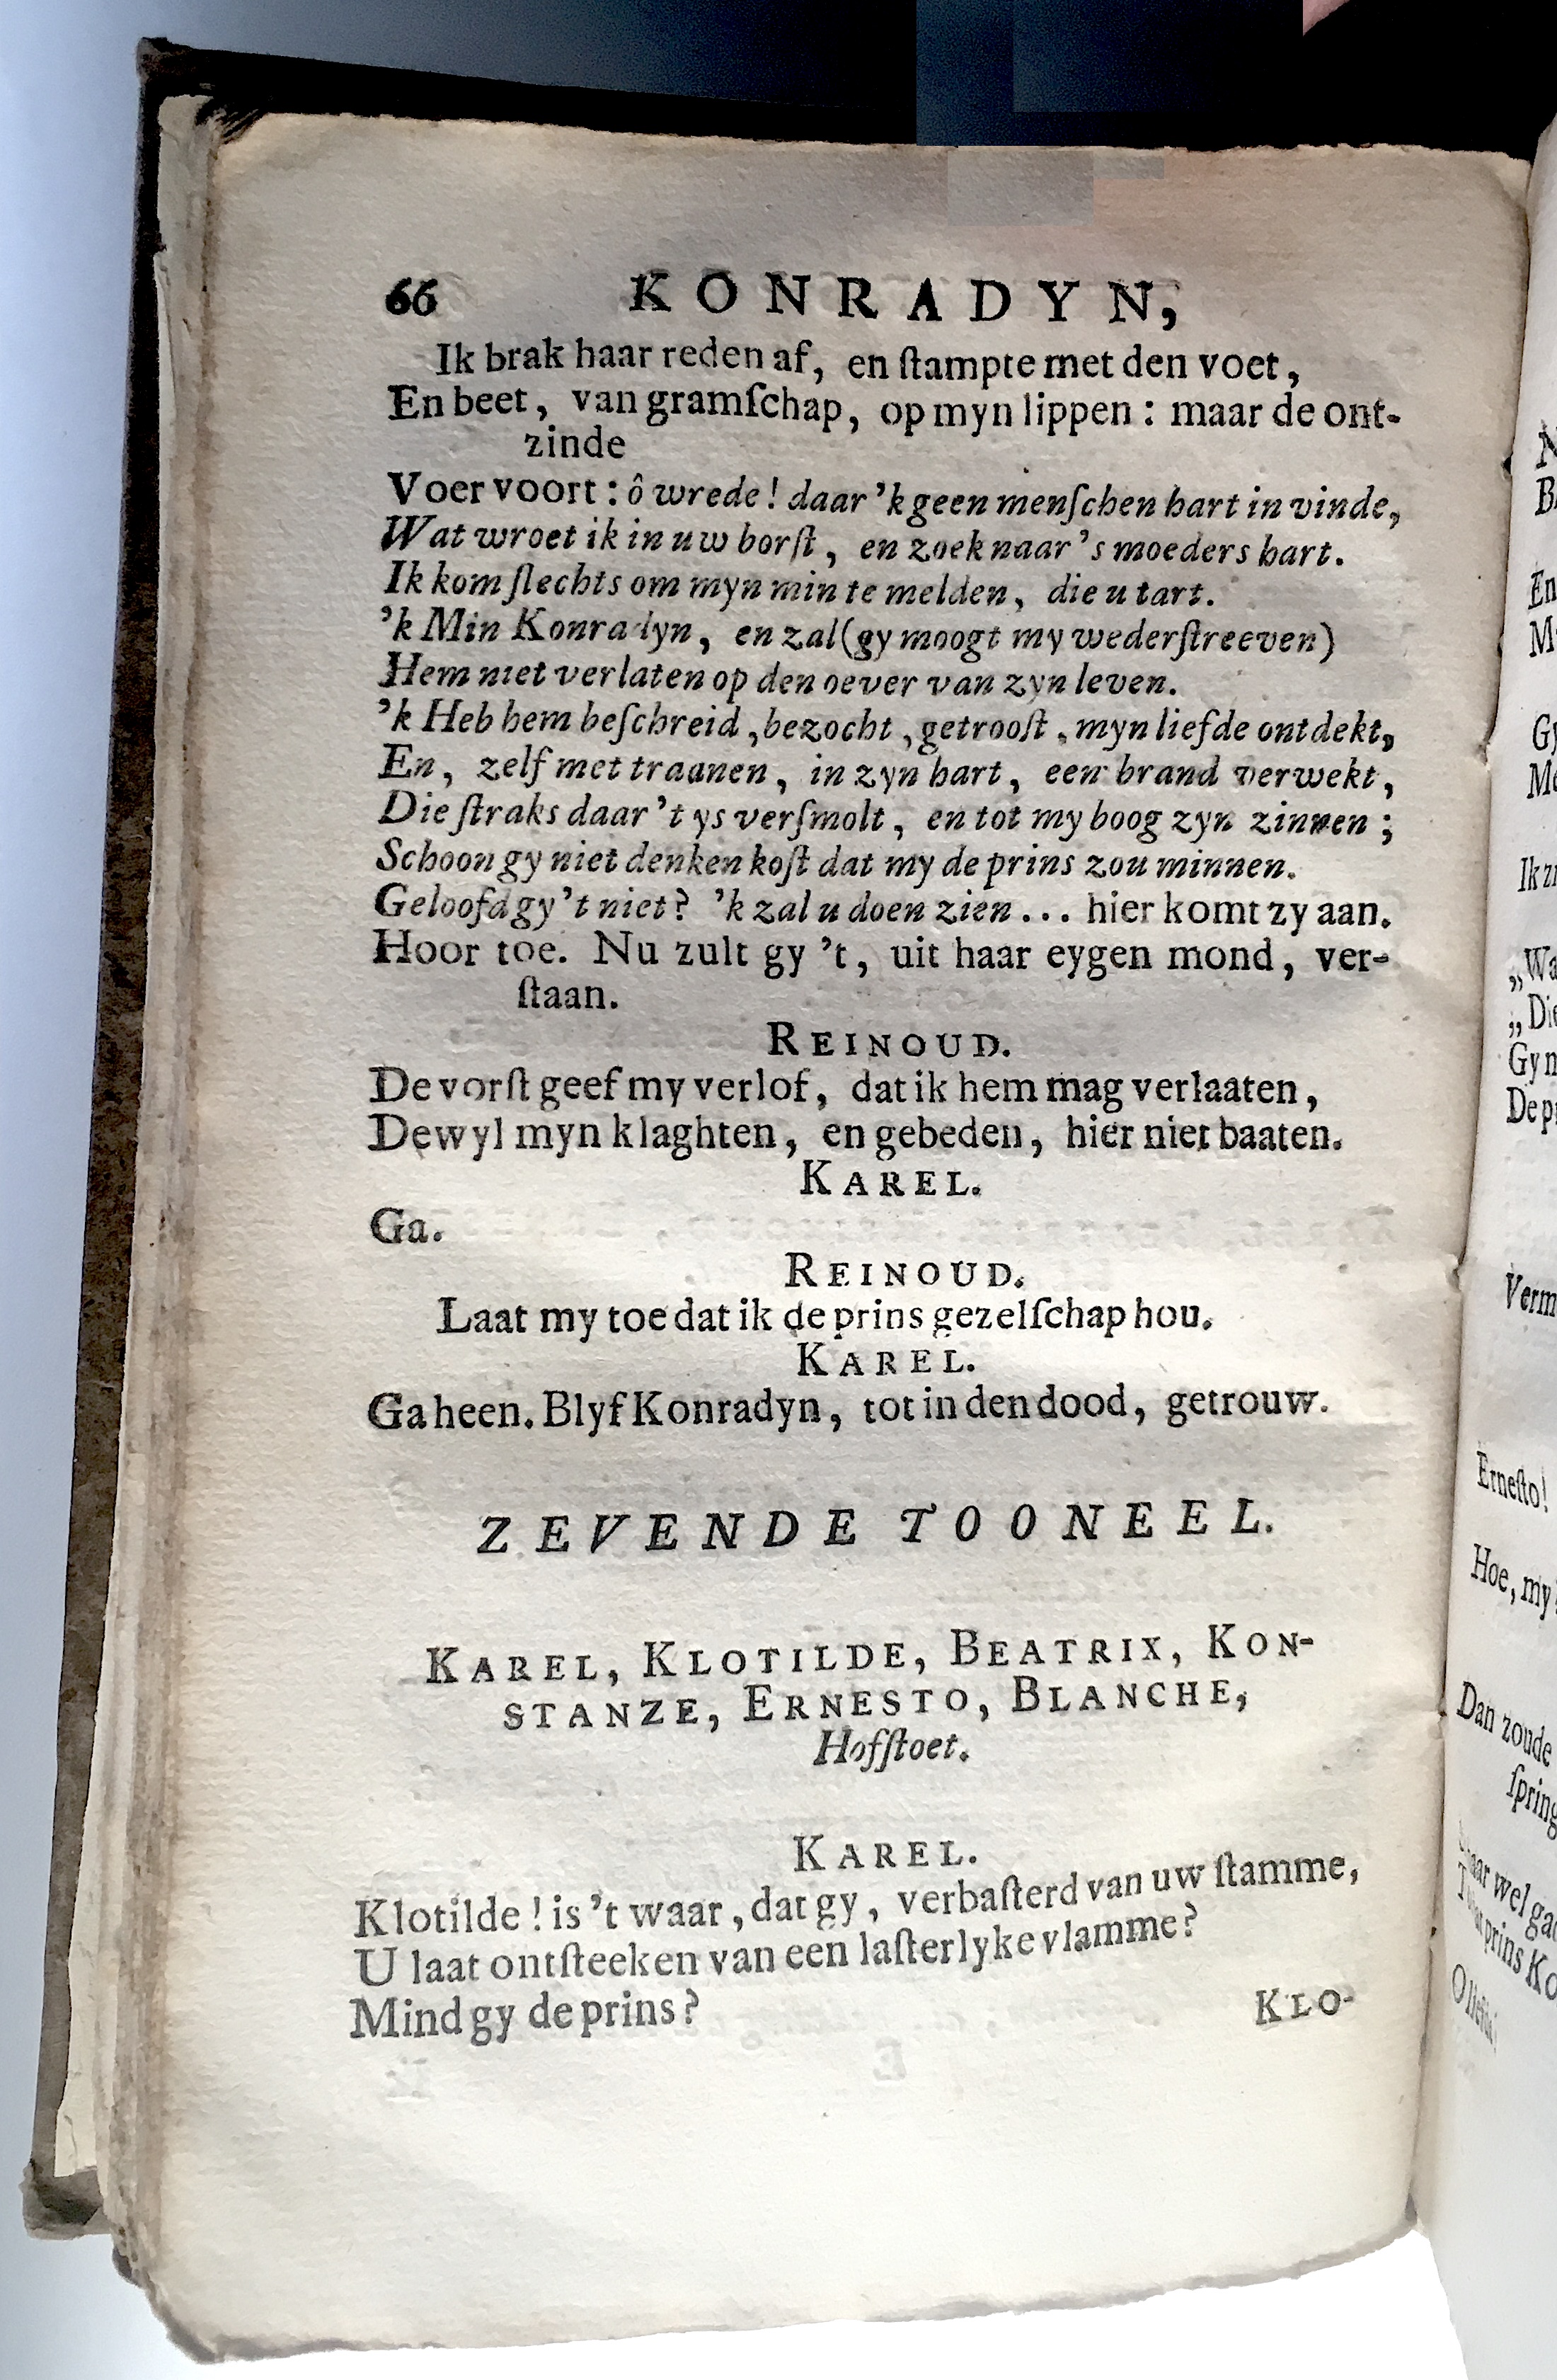 66 KONRADYN,
Ik brak haar reden af, en ſtampte met den voet,
En beet, van gramſchap, op myn lippen: maar de ont-
zinde
Voer voort: ô wrede! daar 'k geen menſchen hart in vinde,
Wat wroet ik in uw borſt, en zoek naar 's moeders hart.
Ik kom ſlechts om myn min te melden, die u tart.
'k Min Konradyn, en zal (gy moogt my wederſtreeven)
Hem niet verlaten op den oever van zyn leven.
'k Heb hem beſchreid, bezocht, getrooſt, myn liefde ontdekt,
En, zelf met traanen, in zyn hart, een brand verwekt,
Die ſtraks daar 't ys verſmolt, en tot my boog zyn zinnen;
Schoon gy niet denken koſt dat my de prins zou minnen.
Geloofd gy 't niet? 'k zal u doen zien... hier komt zy aan.
Hoor toe. Nu zult gy 't, uit haar eygen mond, ver-
ſtaan.
REINOUD.
De vorſt geef my verlof, dat ik hem mag verlaaten,
Dewyl myn klaghten, en gebeden, hier niet baaten.
KAREL.
Ga.
REINOUD.
Laat my toe dat ik de prins gezelſchap hou.
KAREL.
Ga heen. Blyf Konradyn, tot in den dood, getrouw.
ZEVENDE TOONEEL.
KAREL, KLOTILDE, BEATRIX, KON-
STANZE, ERNESTO, BLANCHE,
Hofſtoet.
KAREL.
Klotilde! is 't waar, dat gy, verbaſterd van uw ſtamme,
U laat ontſteeken van een laſterlyke vlamme?
Mind gy de prins?
KLO-
En
Ik
„Wa
„Die
Gy
Ernesto!
Hoe, my
Dan zoude
wel
prins